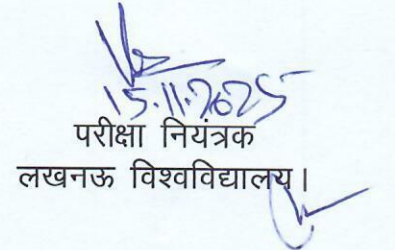 15.11.2025
परीक्षा नियंत्रक
लखनऊ विश्वविद्यालय।